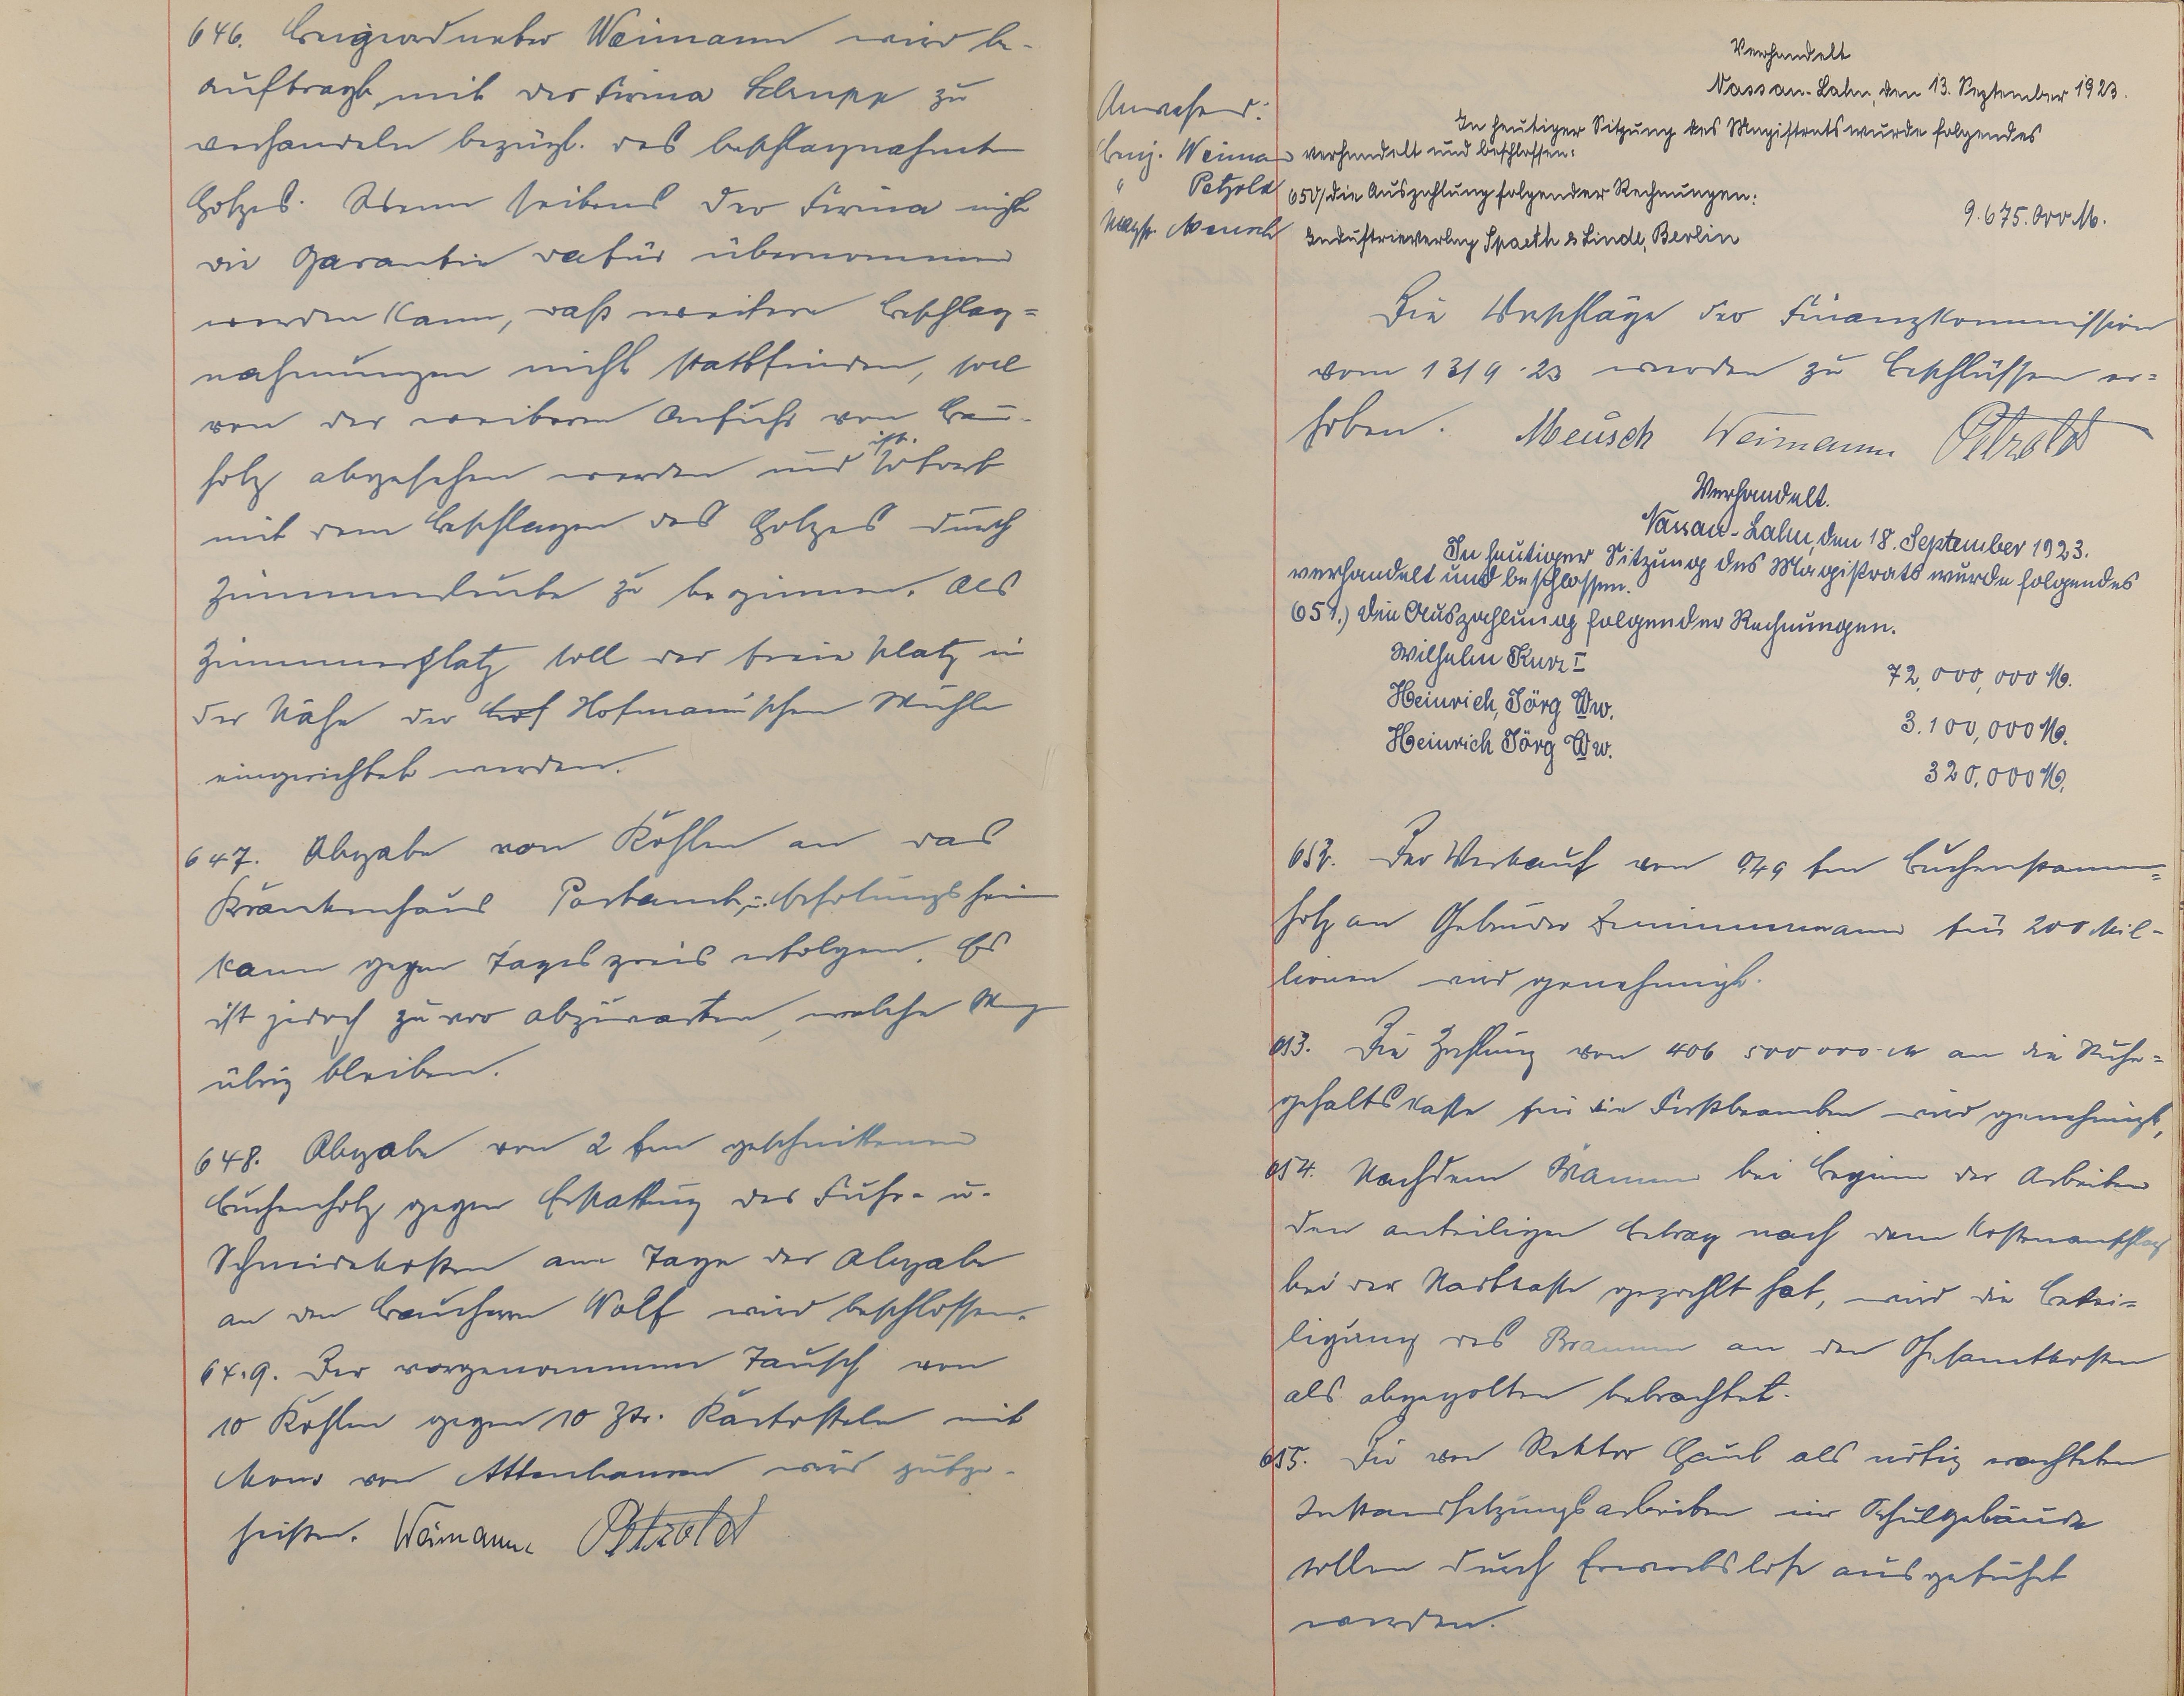 646. Beigeordneter Weimann wird be-
auftragt, mit der Firma Schupp zu
verhandeln bezügl. des beschlagnahmten
Holzes. Wenn seitens der Firma nicht
die Garantie dafür übernommen
werden kann, daß weitere Beschlag=
nahmungen nicht stattfinden, soll
von der weiteren Anfuhr von Bau-
holz abgesehen werden und ist. sofort
mit dem Beschlagen des Holzes durch
Zimmerleute zu beginnen. Als
Zimmerplatz soll der freie Platz in
der Nähe der Hof Hofmann'schen Mühle
eingerichtet werden.
647. Abgabe von Kohlen an das
Krankenhaus Postamt, u. Erholungsheim
kann gegen Tagespreis erfolgen. Es
ist jedoch zuvor abzuwarten, welche Mengen
übrig bleiben.
648. Abgabe von 2 fm geschnittenem
Buchenholz gegen Erstattung der Fuhr- u.
Schneidekosten am Tage der Abgabe
an den Bauherrn Wolf wird beschlossen.
649. Der vorgenommene Tausch von
10 Kohlen gegen 10 Ztr. Kartoffeln mit
von Attenhausen wird gutge-
heißen. Weimann Petzold
Anwesend:
Beig. Weimann
" Petzold
Magstr. Meusch
Verhandelt
Nassau-Lahn, den 13. September 1923.
In heutiger Sitzung des Magistrats wurde folgendes
verhandelt und beschlossen:
650/ die Auszahlung folgender Rechnungen:
Industrieverlag Spaeth & Linde, Berlin 9.675.000 M.
Die Vorschläge der Finanzkommission
vom 13/9.23 werden zu Beschlüssen er=
hoben. Meusch Weimann Petzold
Verhandelt.
Nassau-Lahn, den 18. September 1923.
In heutiger Sitzung des Magistrats wurde folgendes
verhandelt und beschlossen.
651.) die Auszahlung folgender Rechnungen.
Wilhelm Kurz I 72,000,000 M.
Heinrich, Jörg Ww. 3.100,000 M.
Heinrich Jörg Ww. 320,000 M.
652. Der Verkauf von 0,49 fm Buchenstamm=
holz an Gebrüder Zimmermann für 200 Mil-
lionen wird genehmigt.
653. Die Zahlung von 406 500 000.- M an die Ruhe=
gehaltskasse für die Forstbeamten wird genehmigt,
654. Nachdem Bramm bei Beginn der Arbeiten
den anteiligen Betrag nach dem Kostenanschlag
bei der Stadtkasse gezahlt hat, wird die Betei=
ligung des Bramm an den Gesamtkosten
als abgegolten betrachtet.
655. Die von Rektor Gaul als nötig erachteten
Instandsetzungsarbeiten im Schulgebäude
sollen durch Erwerbslose ausgeführt
werden.